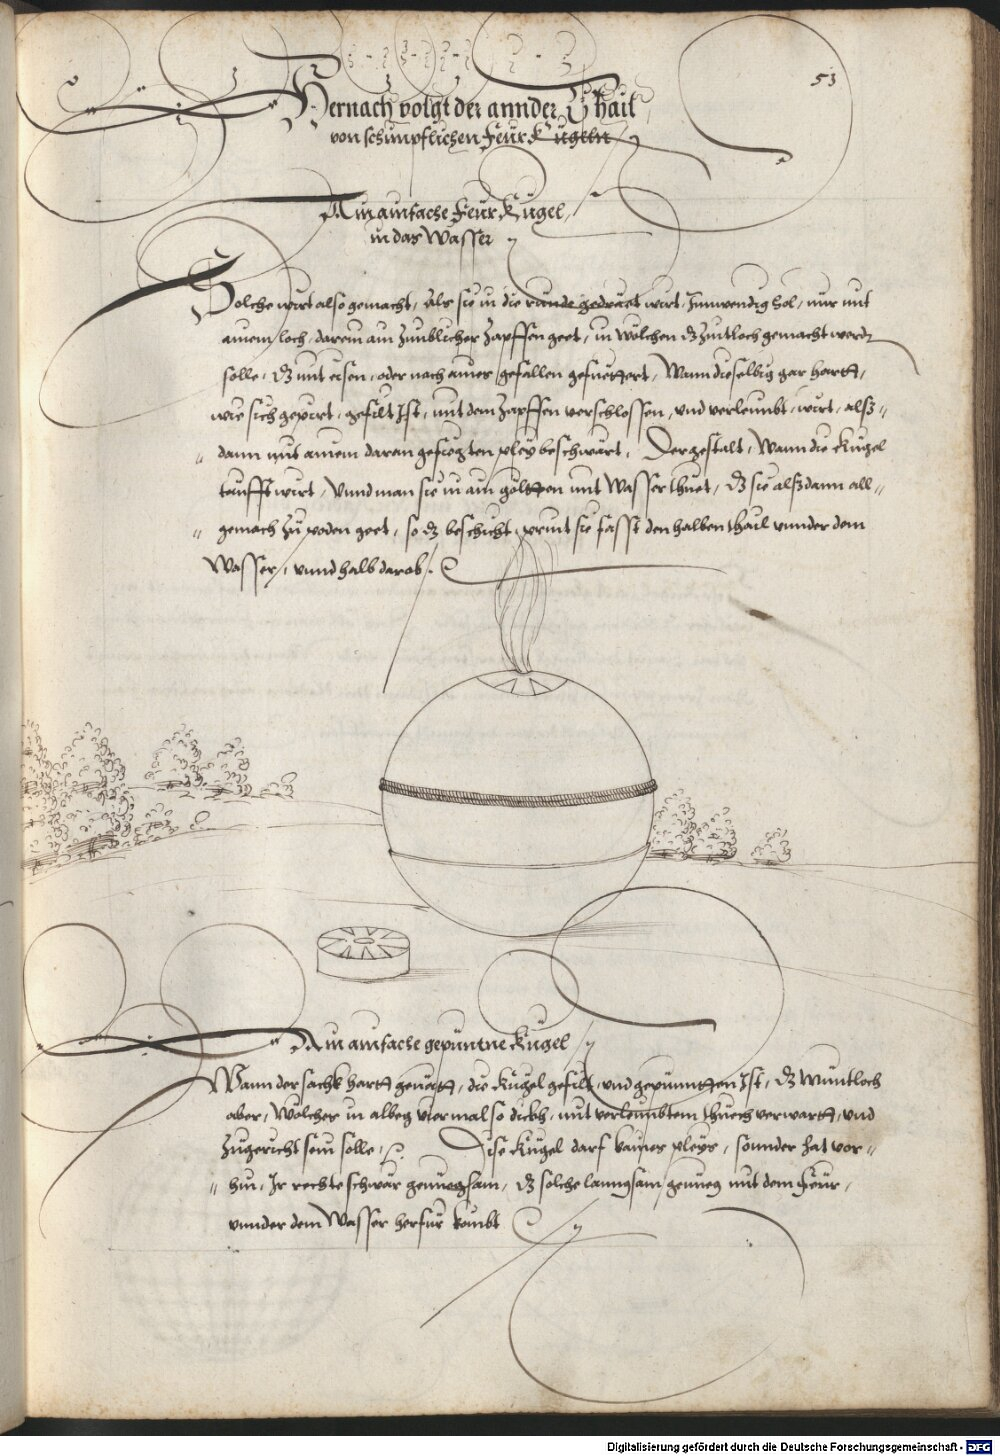 53
Hernach volgt der annder Thail
von schimpflichen Feur Kugeln
Ain ainfache Feur Kugel,
in das Wasser
Solche wirt also gemacht, Als sie in die runde gedräet wirt, Inwendig hol, nur mit
ainem loch, darein ain Zimblicher Zapffen geet, in wölchen dz Zintloch gemacht werdn
solle, dz mit eisen, oder nach aines gefallen gefuettert, Wann dieselbig gar hartt,
wie sich gepirt, gefilt Ist, mit dem Zapffen verschlossen, und verleimbt, wirt, alß=
dann mit ainem daran gefiegten pley beschwärt, Dergestalt, Wann die Kugel
teufft wirt, Vnnd man sie in ain göltten mit Wasser thuet, dz sie alßdann all=
gemach Zu poden geet, so dz beschicht, print sie fasst den halben thail vnnder dem
Wasser, vnnd halb darob.
Ain ainfache gepüntne Kugel,
Wann der sachk hartt geneett, die Kugel gefilt, und gepünntten Ist, dz Wintloch
aber, Wölches in albeg viermal so dickh, mit verleimbtem thuech verwartt, und
Zugericht sein solle, Dise Kugel darf kaines pleys, sonnder hat vor=
hin, Ir rechte schwär genuegsam, dz solche lanngsam genueg mit dem Feur,
vnnder dem Wasser herfür kombt
Digitalisierung gefördert durch die Deutsche Forschungsgemeinschaft - DFG